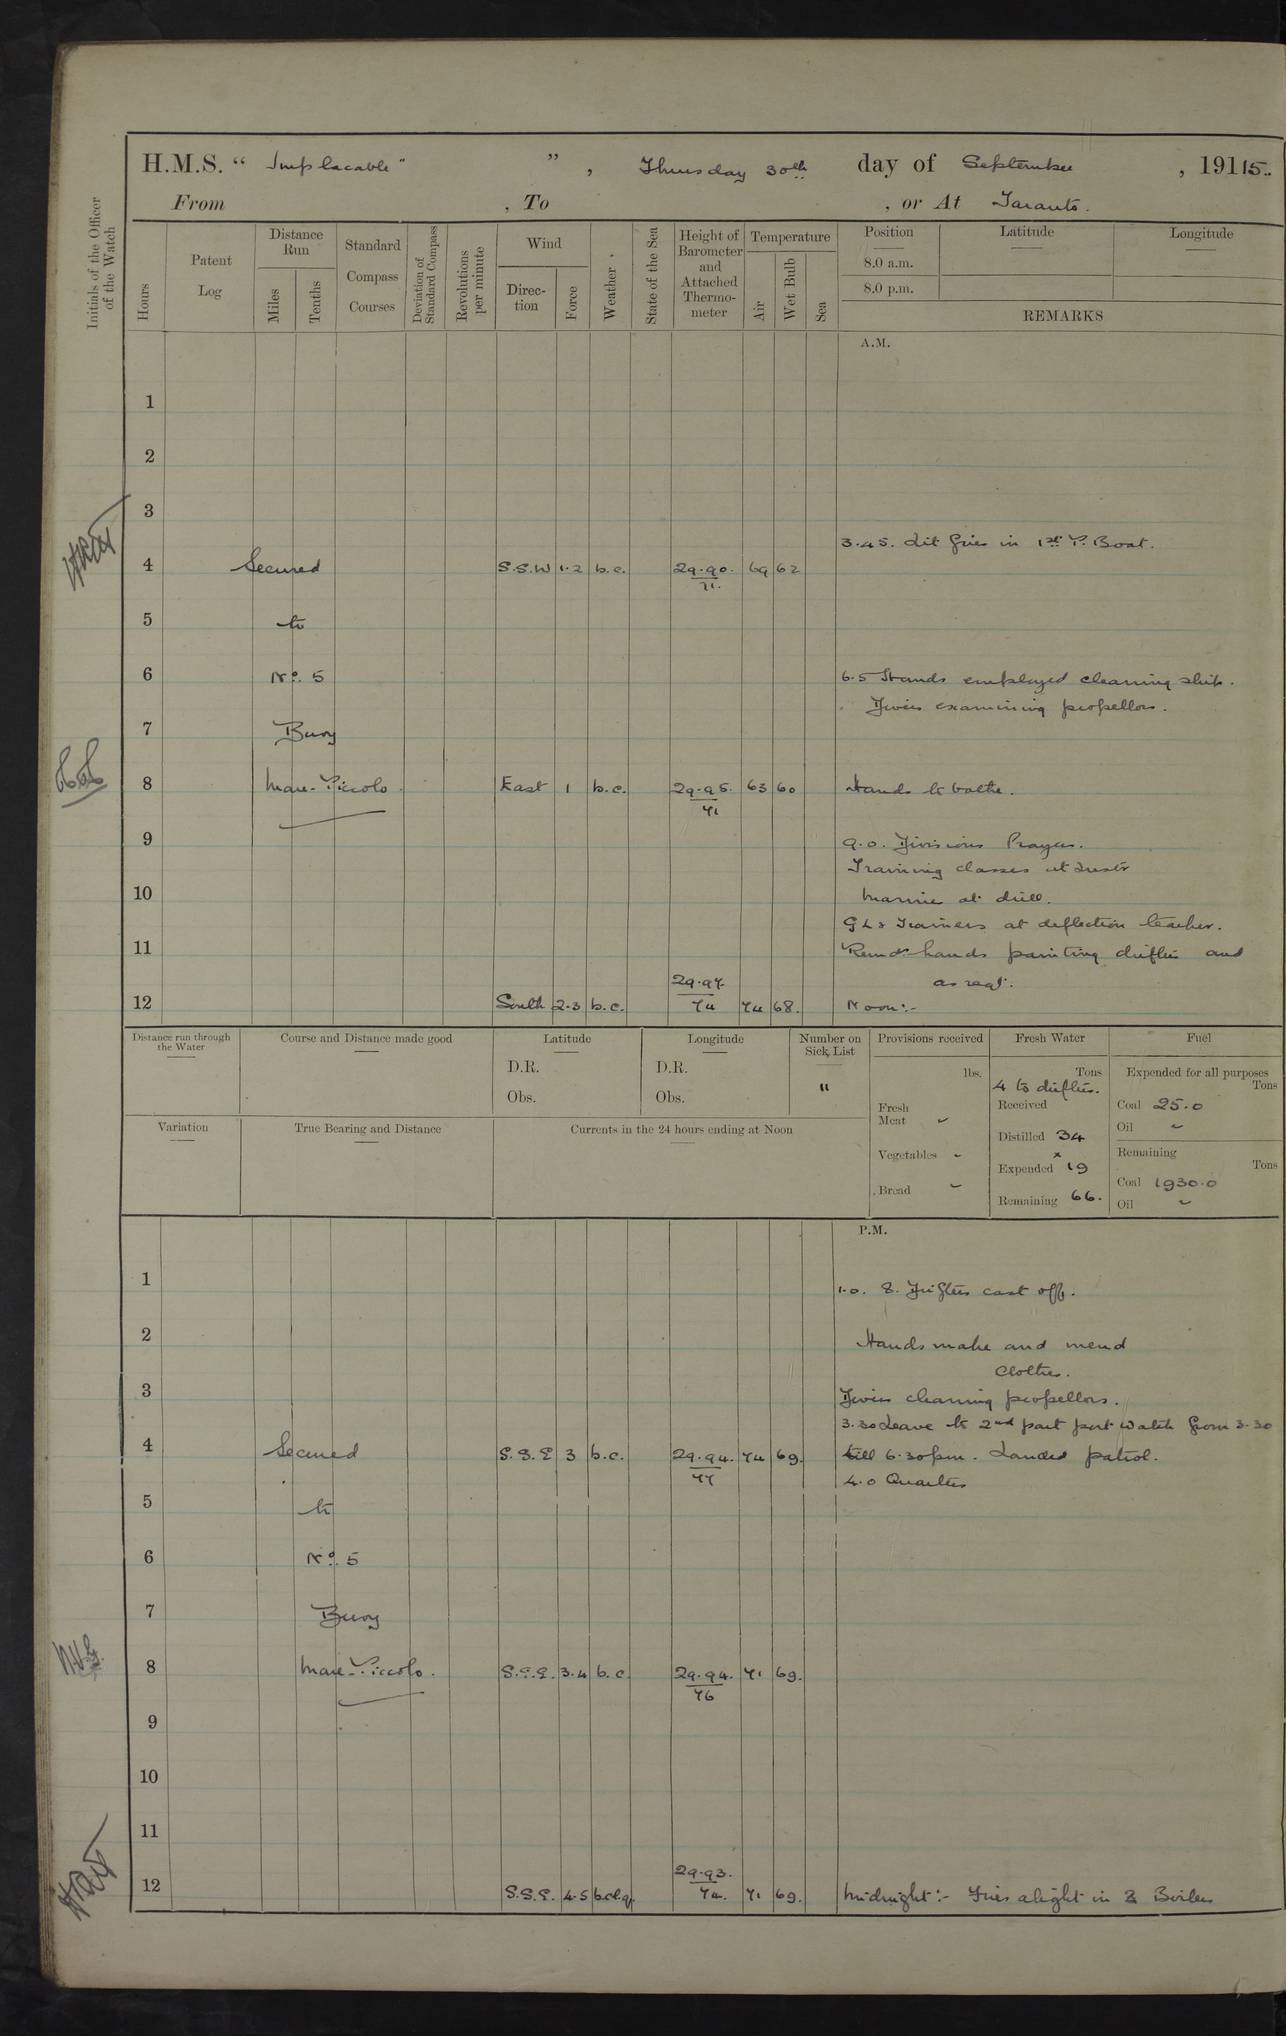 H.M.S. “ Implacable” ” , Thursday 30th day of September , 19115..
From , To , or At Taranto.
Initials of the Officer of the Watch
Hours
Patent Log
Distance Run
Miles
Tenths
Standard Compass Courses
Deviation of Standard Compass
Revolutions per minute
Wind
Direction
Force
Weather .
State of the Sea
Height of Barometer and Attached Thermometer
Temperature
Air
Wet Bulb
Sea
Position
8.0 a.m.
8.0 p.m.
Latitude
Longitude
REMARKS
A.M.
1
2
3
3.45. Lit fires in 1st P. Boat.
4 Secured S.S.W 1.2 b.c. 29.90. 69 62
71.
5 to
6 No. 5 6.5 Hands employed cleaning ship.
Divers examining propellors.
7 Buoy
8 Mare-Piccolo. East 1 b.c. 29.95. 63 60 Hands to bathe.
71
9 9.0. Divisions Prayers.
Training classes at Instr
10 Marines at drill.
G L & Trainers at deflection teacher.
11 Remdr hands painting drifters and
29.97. as reqd.
12 South 2.3 b.c. 74 74 68. Noon:-
Distance run through the Water
Course and Distance made good
Latitude
D.R.
Obs.
Longitude
D.R.
Obs.
Number on Sick List
"
Provisions received
lbs.
Fresh Meat ~
Vegetables -
Bread ~
Fresh Water
Tons
4 to drifters.
Received
Distilled 34
x
Expended 19
Remaining 66.
Fuel
Expended for all purposes
Tons
Coal 25.0
Oil ~
Remaining
Tons
Coal 1930.0
Oil ~
Variation
True Bearing and Distance
Currents in the 24 hours ending at Noon
P.M.
1 1.0. 8. Drifters cast off.
2 Hands make and mend
clothes.
3 Divers cleaning propellors.
3.30 Leave to 2nd part port watch from 3.30
4 Secured S.S.E 3 b.c. 29.94. 74 69. till 6.30pm. Landed patrol.
77
4.0 Quarters
5 to
6 No. 5
7 Buoy
8 Mare-Piccolo. S.S.E. 3.4 b.c. 29.94. 71 69.
76
9
10
11
29.93.
12 S.S.E. 4.5 b.c.l.q. 74. 71 69. Midnight:- Fires alight in 2 Boilers